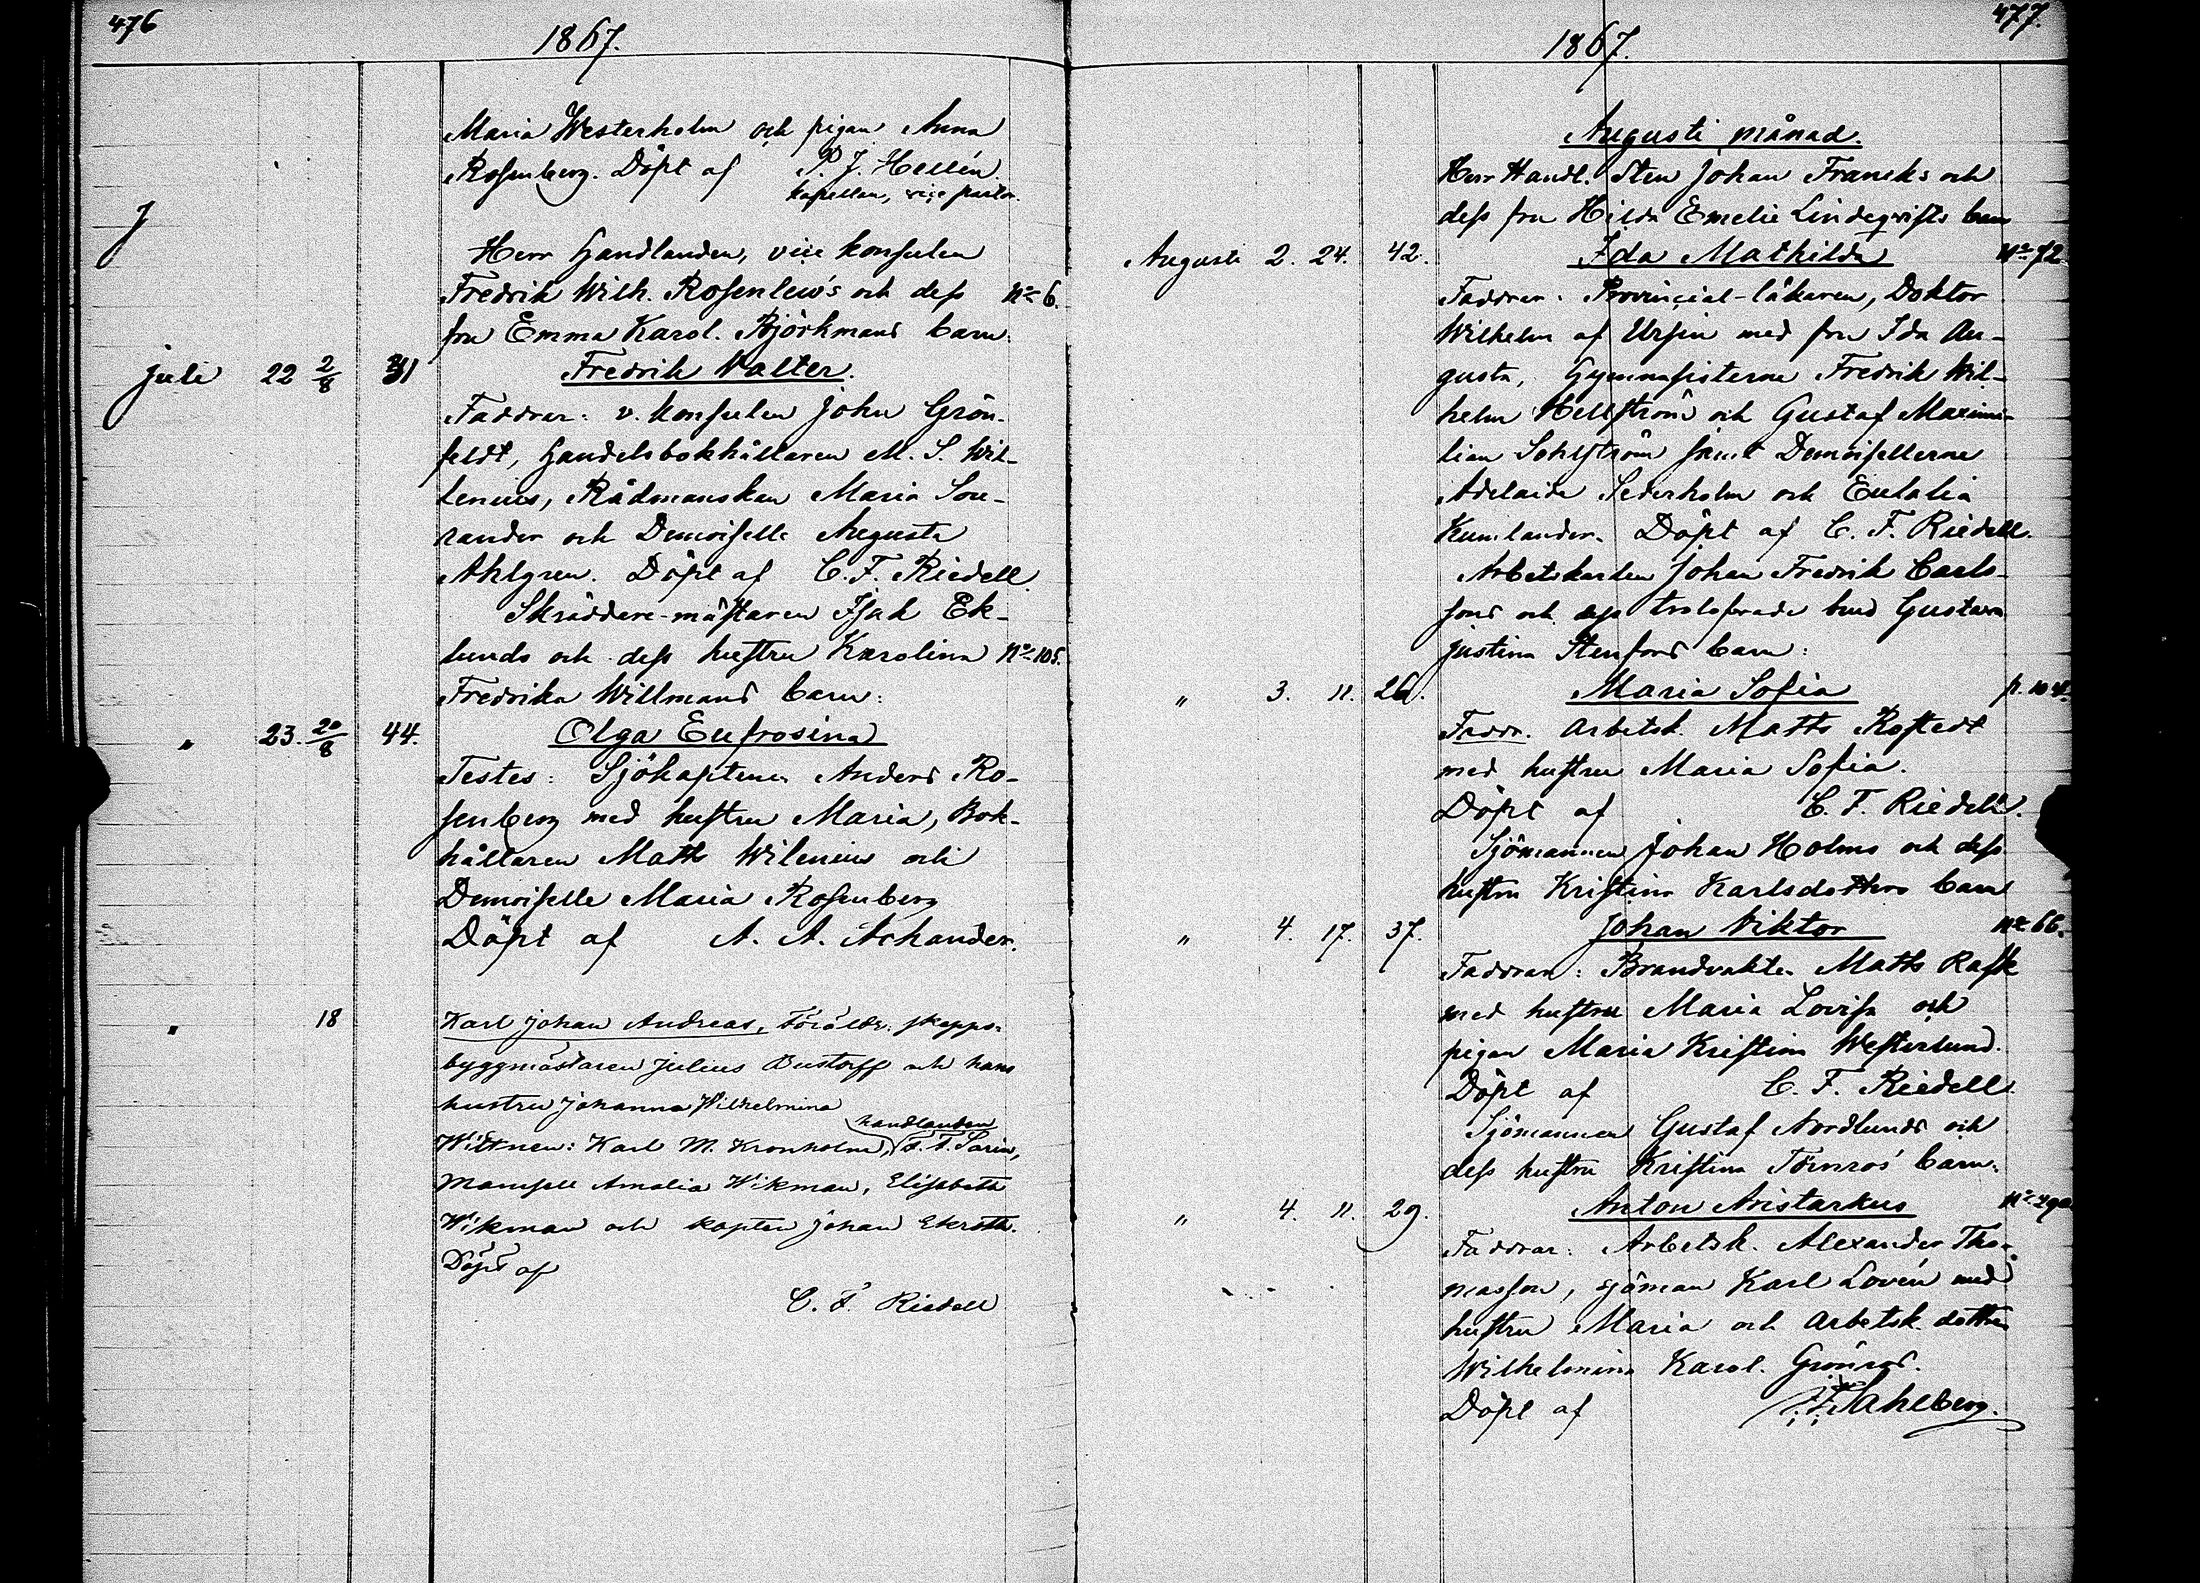 476
1867.
Maria Westerholm och pigan Anna
Rosenberg. Döpt af P. J. Hellén.
kapellan, vice pastor.
J
Herr Handlanden, vice konsulen
Fredrik Wilh. Rosenlew's och dess No 6.
fru Emma Karol. Björkmans barn:
juli 22 2/8 31 Fredrik Valter.
Faddrar: v. konsulen John Grön-
feldt, Handelsbokhållaren M. S. Wil-
lenius, Rådmanskan Maria Son-
rander och Demoiselle Augusta
Ahlgren. Döpt af C. F. Riedell.
Skräddare-mästaren Isak Ek-
lunds och dess hustru Karolina No 105.
Fredrika Willmans barn:
" 23. 20/8 44. Olga Eufrosina
Testes: Sjökaptenen Anders Ro-
senberg med hustru Maria, Bok-
hållaren Matts Wilenius och
Demoiselle Maria Rosenberg
Döpt af A. A. Achander.
" 18 Karl Johan Andreas, Föräldr. skepps-
byggmästaren Julius Bustorff och hans
hustru Johanna Wilhelmina
handlanden
Wittnen: Karl M. Kronholm, F. A. Sarin,
Mamsell Amalia Wikman, Elisabeth
Wikman och kapten Johan Ekroth.
Döpt af
C. F. Riedell
477.
1867.
Augusti månad.
Herr Handl. Sten Johan Francks och
dess fru Hilda Emelie Lindeqvists barn
Augusti 2. 24. 42. Ida Mathilda No 72
Faddrar: Provincial-läkaren, Doktor
Wilhelm af Ursin med fru Ida Au-
gusta, Gymnasisterne Fredrik Wil-
helm Hellström och Gustaf Maximi-
lian Sohlström samt Demoisellerne
Adelaide Sederholm och Eulalia
Kumlander. Döpt af C. F. Riedell.
Arbetskarlen Johan Fredrik Carls-
sons och dess trolofvade brud Gustava
Justina Stenfors barn:
" 3. 11. 26. Maria Sofia p. 104.
Faddr. Arbetsk. Matts Rostedt
med hustru Maria Sofia.
Döpt af C. F. Riedell.
Sjömannen Johan Holms och dess
hustru Kristina Karlsdotters barn
" 4. 17. 37. Johan Viktor No 66.
Faddrar: Brandvakten Matts Rask
med hustru Maria Lovisa och
pigan Maria Kristina Westerlund.
Döpt af C. F. Riedell.
Sjömannen Gustaf Nordlunds och
dess hustru Kristina Törnros' barn.
" 4. 11. 29. Anton Aristarkus No 290
Faddrar: Arbetsk. Alexander Tho-
masson, sjöman Karl Lovén med
hustru Maria och Arbetsk. dotter
Wilhelmina Karol. Grönros.
Döpt af Sahlberg.